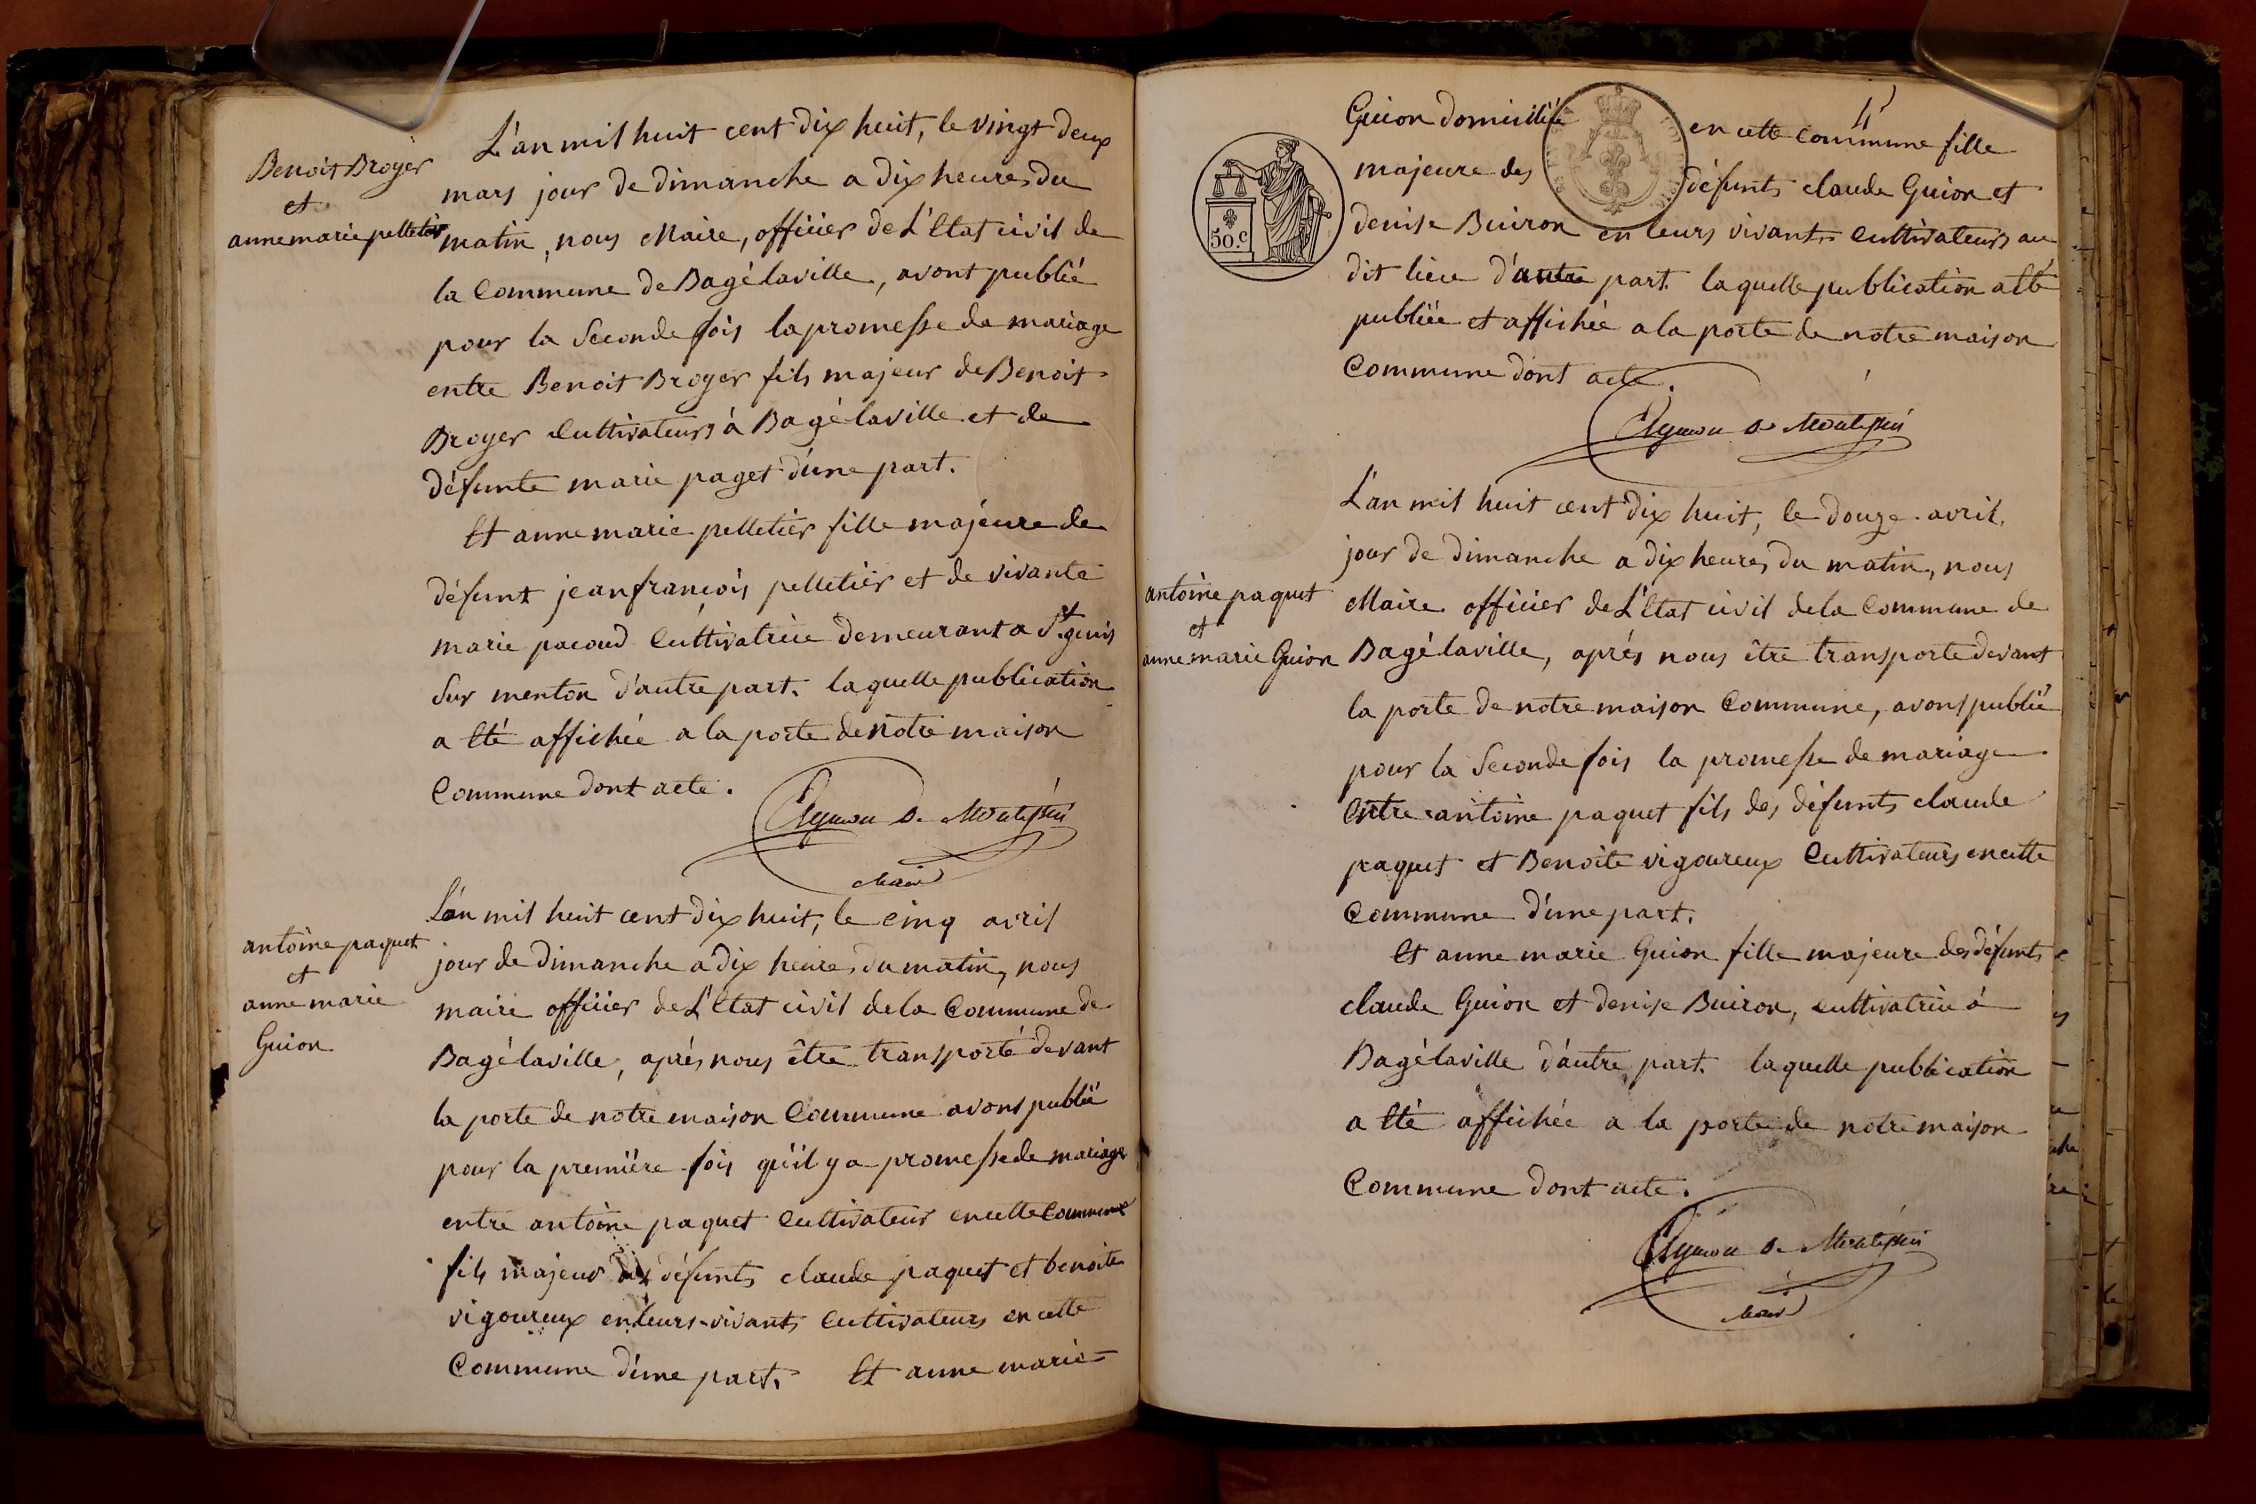 Benoit Broyer
et
anne marie pelletier
L'an mil huit cent dix huit, le vingt deux
mars jour de dimanche a dix heures du
matin, nous Maire, officier de L'Etat civil de
la Commune de Bagélaville, avont publié
pour la Seconde fois la promesse de mariage
entre Benoit Broyer fils majeur de Benoit
Broyer Cultivateurs à Bagélaville et de
défunte marie paget d'une part.
Et anne marie pelletier fille majeure de
défunt jean françois pelletier et de vivante
marie pacoud Cultivatrice demeurant a St. genis
Sur menton d'autre part. laquelle publication
a Eté affichée a la porte de notre maison
Commune dont acte.
Aymon De Montépin
Maire
antoine paquet
et
anne marie
Guion
L'an mil huit cent dix huit, le cinq avril
jour de dimanche a dix heures du matin, nous
maire officier de L'Etat civil de la Commune de
Bagélaville, après nous être transporté devant
la porte de notre maison Commune avons publié
pour la première fois qu'il y a promesse de mariage
entre antoine paquet Cultivateur en cette Commune
fils majeur des défunts claude paquet et benoite
vigoureux en leurs vivants Cultivateurs en cette
Commune d'une part. Et anne marie
Guion domiciliée en cette commune fille
majeure des défunts claude Guion et
denise Buiron en leurs vivants Cultivateurs au
dit lieu d'autre part. laquelle publication a été
publiée et affichée a la porte de notre maison
Commune dont acte.
50.c
Aymon De Montépin
antoine paquet
et
anne marie Guion
L'an mil huit cent dix huit, le douze avril,
jour de dimanche a dix heures du matin, nous
Maire officier de L'Etat civil de la Commune de
Bagélaville, après nous être transporté devant
la porte de notre maison Commune, avons publié
pour la Seconde fois la promesse de mariage
Entre antoine paquet fils des défunts claude
paquet et Benoite vigoureux Cultivateurs en cette
Commune d'une part.
Et anne marie Guion fille majeure des défunts
claude Guion et denise Buiron, cultivatrice à
Bagélaville d'autre part. laquelle publication
a Eté affichée a la porte de notre maison
Commune dont acte.
Aymon De Montépin
Maire